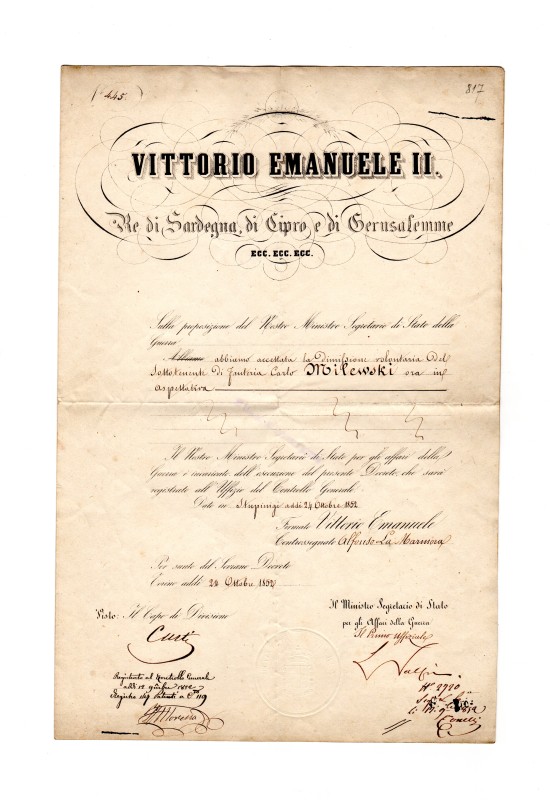 (° 445.)
817
VITTORIO EMANUELE II.
Re di Sardegna, di Cipro, e di Gerusalemme
ECC. ECC. ECC.
Sulla proposizione del Nostro Ministro Segretario di Stato della
Guerra
Abbiamo abbiamo accettata la dimissione volontaria del
Sottotenente di fanteria Carlo Milewski ora in
aspettativa
Il Nostro Ministro Segretario di Stato per gli affari della
Guerra è incaricato dell'esecuzione del presente Decreto, che sarà
registrato all'Uffizio del Controllo Generale.
Dato in Stupinigi addì 24 Ottobre 1852.
Firmato Vittorio Emanuele
Controssegnato Alfonso La Marmora
Per sunto del Sovrano Decreto
Torino addì 28 Ottobre 1852
Visto: Il Capo di Divisione
Il Ministro Segretario di Stato
per gli Affari della Guerra
Il Primo Uffiziale
Registrato al Controllo Generale
addì 12 9bre 1852
Registro 14 Patenti a C. 119
N° 2920